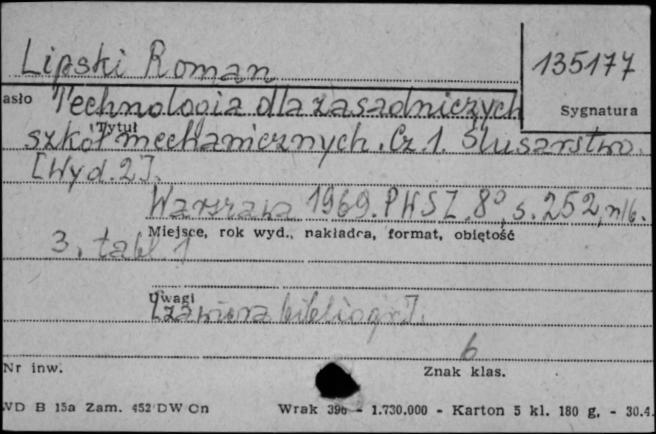 Lipski Roman
135177
asło
Technologia dla zasadniczych
Sygnatura
Tytuł
szkół mechanicznych. Cz 1. Ślusarstwo.
[Wyd. 2].
Warszawa 1969. PWSZ, 8°, s. 252, nlb.
Miejsce, rok wyd., nakładca, format, objętość
3. tabl 1
Uwagi
[zawiera bibliogr].
6
Nr inw.
Znak klas.
WD B 15a Zam. 452 DW On
Wrak 396 - 1.730.000 - Karton 5 kl. 180 g. - 30.4.